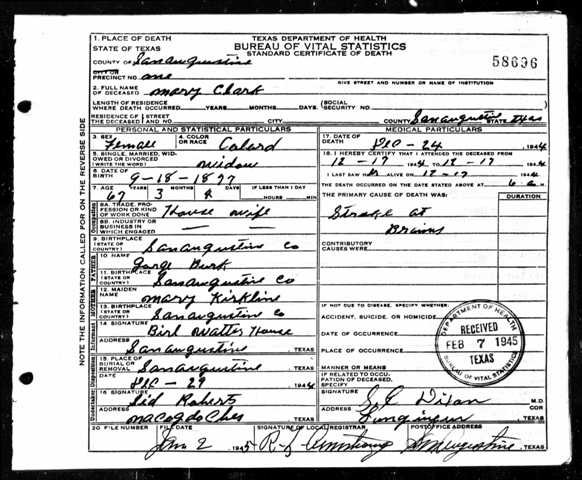 1. PLACE OF DEATH
STATE OF TEXAS
TEXAS DEPARTMENT OF HEALTH
BUREAU OF VITAL STATISTICS
STANDARD CERTIFICATE OF DEATH
58696
COUNTY OF San augustine
CITY OR
PRECINCT NO. one
GIVE STREET AND NUMBER OR NAME OF INSTITUTION
2. FULL NAME
OF DECEASED mary Clark
LENGTH OF RESIDENCE
WHERE DEATH OCCURRED YEARS MONTHS DAYS (SOCIAL SECURITY NO.
RESIDENCE OF THE DECEASED STREET AND NO. CITY COUNTY San augustin STATE Texas
PERSONAL AND STATISTICAL PARTICULARS
3. SEX Female
4. COLOR OR RACE Colard
5. SINGLE, MARRIED, WIDOWED OR DIVORCED (WRITE THE WORD) Widow
6. DATE OF BIRTH 9-18-1877
7. AGE YEARS MONTHS DAYS IF LESS THAN 1 DAY
67 3 HOURS MIN
8A. TRADE, PROFESSION OR KIND OF WORK DONE House wife
8B. INDUSTRY OR BUSINESS IN WHICH ENGAGED
9. BIRTHPLACE (STATE OR COUNTRY) San augustin Co
FATHER
10. NAME Gorge Burk
11. BIRTHPLACE (STATE OR COUNTRY) San augustine Co
MOTHER
12. MAIDEN NAME mary Kirklin
13. BIRTHPLACE (STATE OR COUNTRY) San augustin Co
14. SIGNATURE Birl Walter House
ADDRESS San augustine TEXAS
15. PLACE OF BURIAL OR REMOVAL San augustine TEXAS
DEC - 29 1944
16. SIGNATURE Sid Roberts
ADDRESS nacogdoches TEXAS
20. FILE NUMBER
FILE DATE Jan 2 1945
SIGNATURE OF LOCAL REGISTRAR R J Armstrong
POSTOFFICE ADDRESS San Augustine, TEXAS
MEDICAL PARTICULARS
17. DATE OF DEATH DEC - 24 1944
18. I HEREBY CERTIFY THAT I ATTENDED THE DECEASED FROM
12-17 1944 TO 12-17 1944
I LAST SAW ALIVE ON 12-17 1944
THE DEATH OCCURRED ON THE DATE STATED ABOVE AT 6 M
THE PRIMARY CAUSE OF DEATH WAS: DURATION
Stroke at
Brains
CONTRIBUTORY
CAUSES WERE:
IF NOT DUE TO DISEASE, SPECIFY WHETHER:
ACCIDENT, SUICIDE, OR HOMICIDE
DATE OF OCCURRENCE
PLACE OF OCCURRENCE
MANNER OR MEANS
IF RELATED TO OCCUPATION OF DECEASED, SPECIFY
SIGNATURE M.D.
ADDRESS COR
TEXAS
DEPARTMENT OF HEALTH
RECEIVED
FEB 7 1945
TEXAS
BUREAU OF VITAL STATISTICS
NOTE THE INFORMATION CALLED FOR ON THE REVERSE SIDE